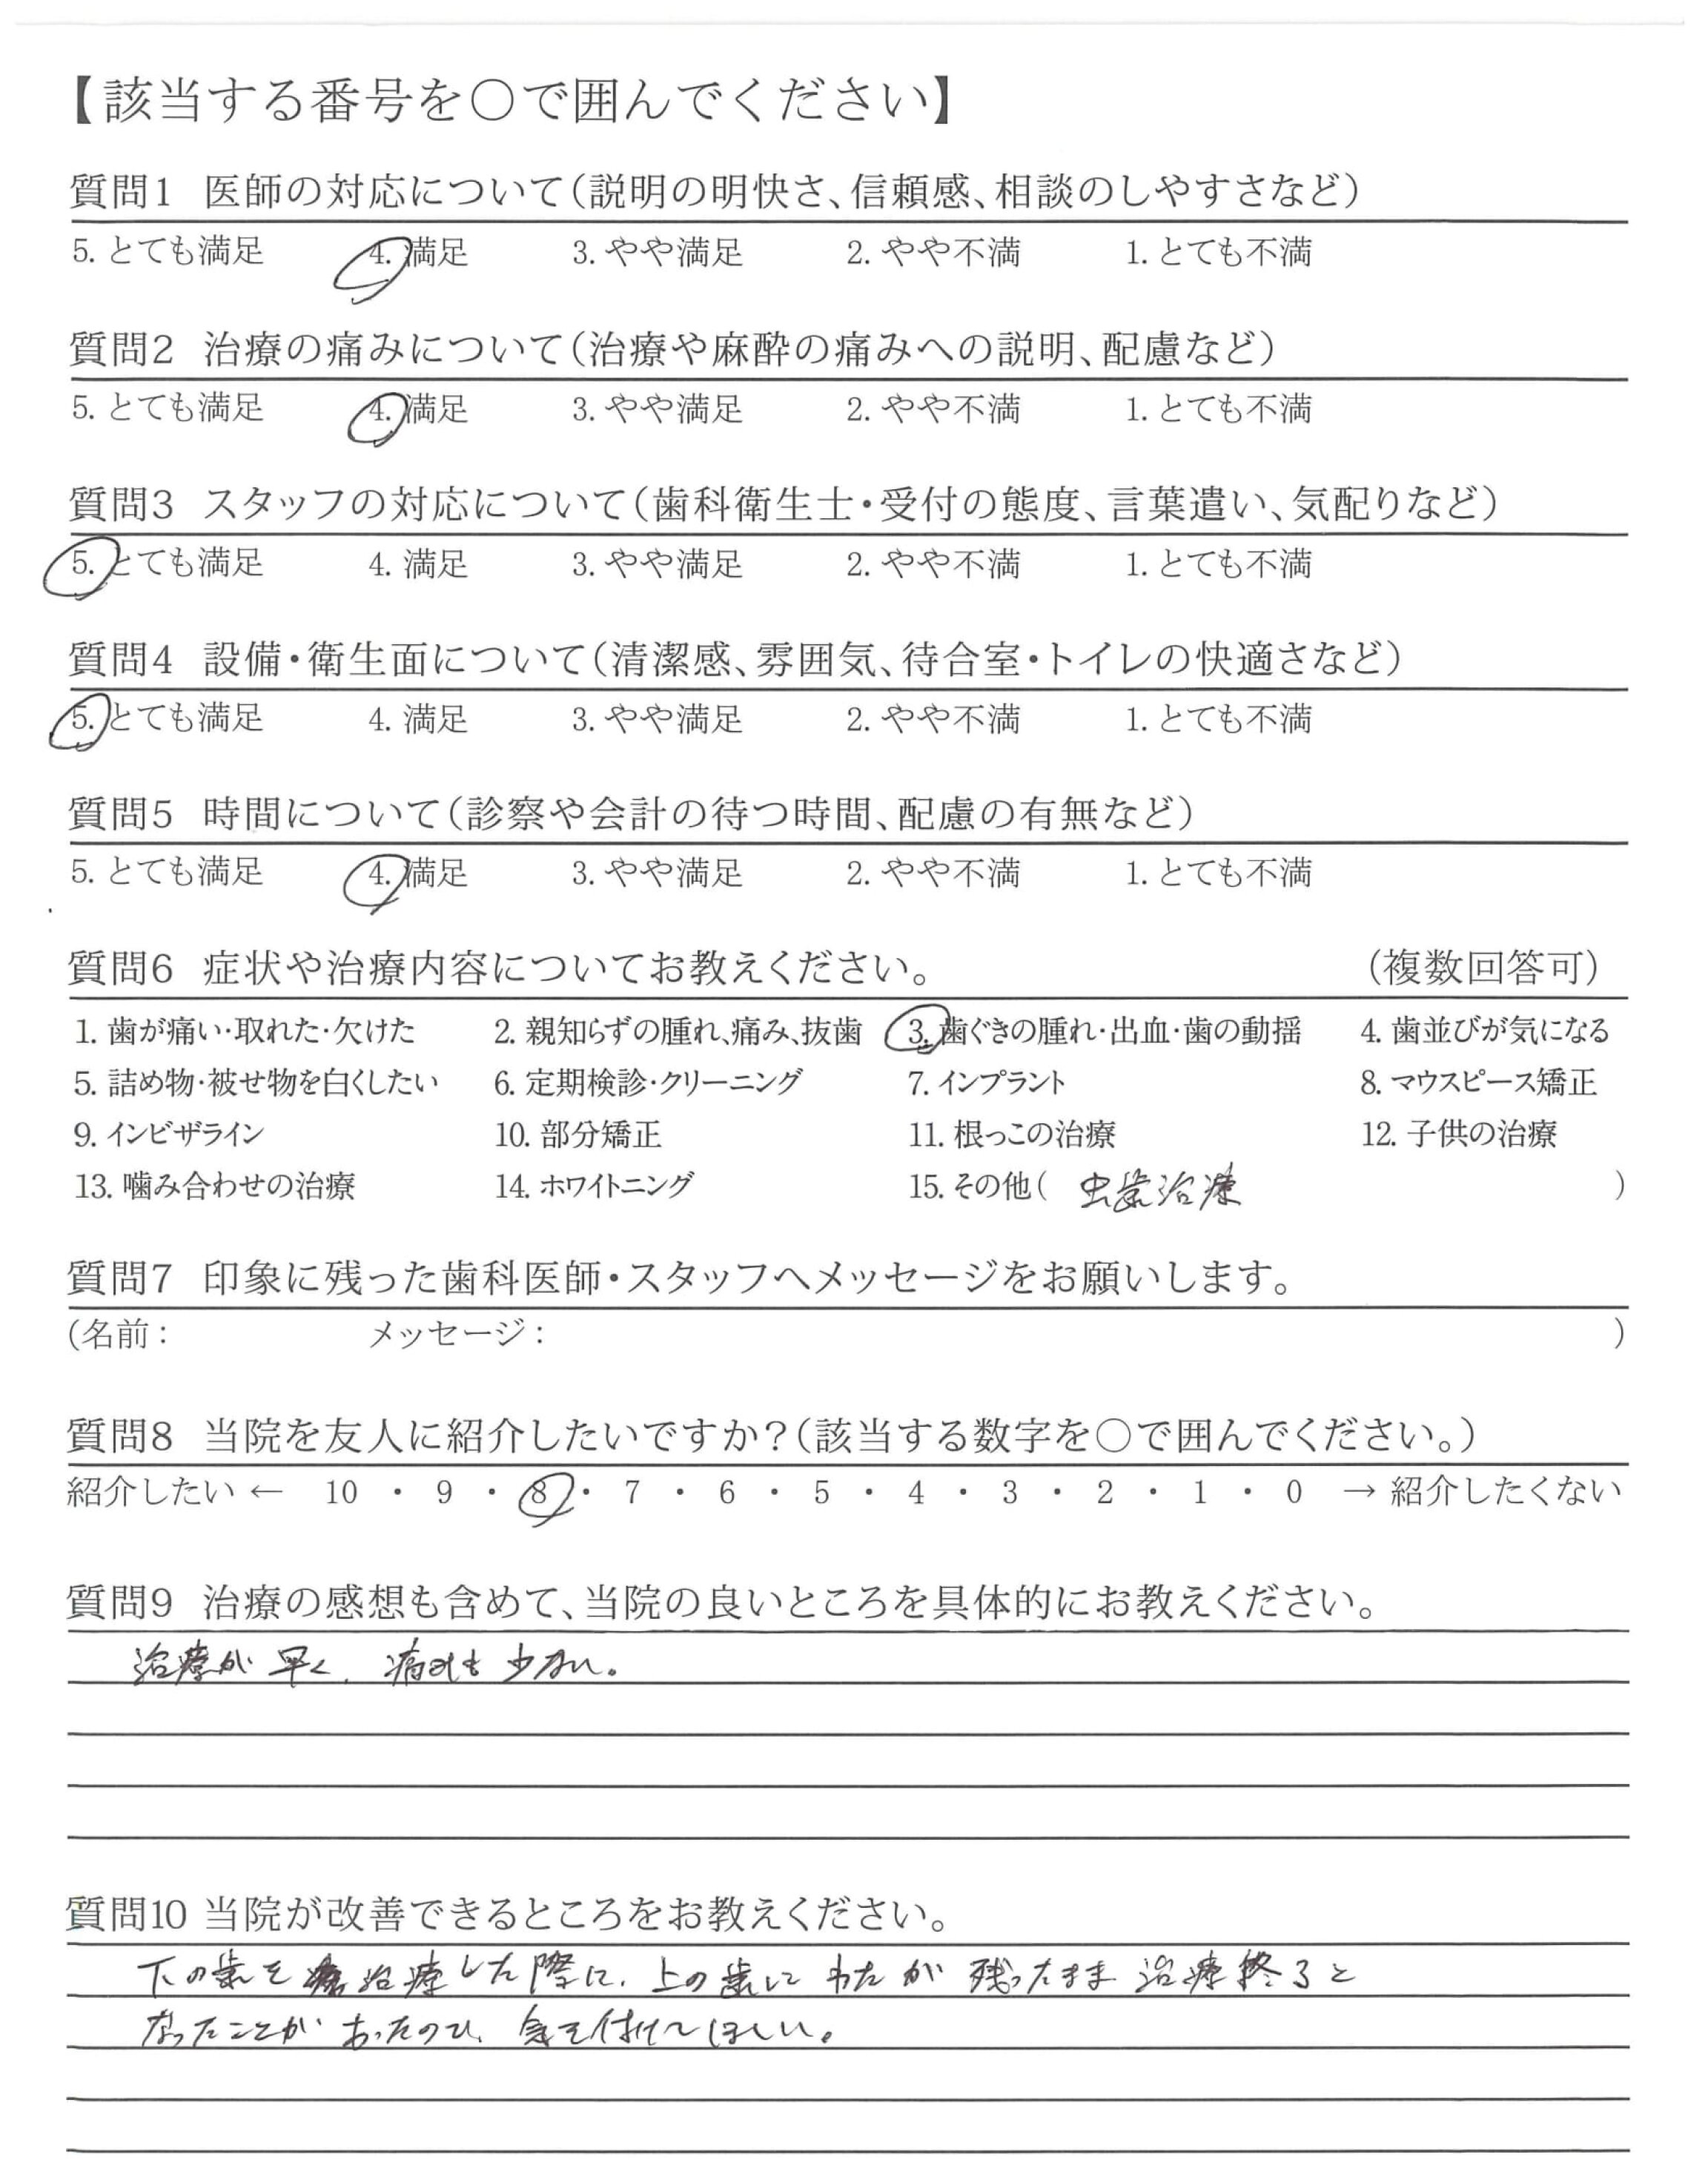 【該当する番号を○で囲んでください】
質問1 医師の対応について(説明の明快さ、信頼感、相談のしやすさなど)
5. とても満足 4. 満足 3. やや満足 2. やや不満 1. とても不満
質問2 治療の痛みについて(治療や麻酔の痛みへの説明、配慮など)
5. とても満足 4. 満足 3. やや満足 2. やや不満 1. とても不満
質問3 スタッフの対応について(歯科衛生士・受付の態度、言葉遣い、気配りなど)
5. とても満足 4. 満足 3. やや満足 2. やや不満 1. とても不満
質問4 設備・衛生面について(清潔感、雰囲気、待合室・トイレの快適さなど)
5. とても満足 4. 満足 3. やや満足 2. やや不満 1. とても不満
質問5 時間について(診察や会計の待つ時間、配慮の有無など)
5. とても満足 4. 満足 3. やや満足 2. やや不満 1. とても不満
質問6 症状や治療内容についてお教えください。 (複数回答可)
1. 歯が痛い・取れた・欠けた 2. 親知らずの腫れ、痛み、抜歯 3. 歯ぐきの腫れ・出血・歯の動揺 4. 歯並びが気になる
5. 詰め物・被せ物を白くしたい 6. 定期検診・クリーニング 7. インプラント 8. マウスピース矯正
9. インビザライン 10. 部分矯正 11. 根っこの治療 12. 子供の治療
13. 噛み合わせの治療 14. ホワイトニング 15. その他( 虫歯治療 )
質問7 印象に残った歯科医師・スタッフへメッセージをお願いします。
(名前: メッセージ: )
質問8 当院を友人に紹介したいですか?(該当する数字を○で囲んでください。)
紹介したい ← 10 ・ 9 ・ 8 ・ 7 ・ 6 ・ 5 ・ 4 ・ 3 ・ 2 ・ 1 ・ 0 → 紹介したくない
質問9 治療の感想も含めて、当院の良いところを具体的にお教えください。
治療が早く、痛みも少ない。
質問10 当院が改善できるところをお教えください。
下の歯を治療した際に、上の歯にわたが残ったまま治療終ると
なったことがあったので、気を付けてほしい。